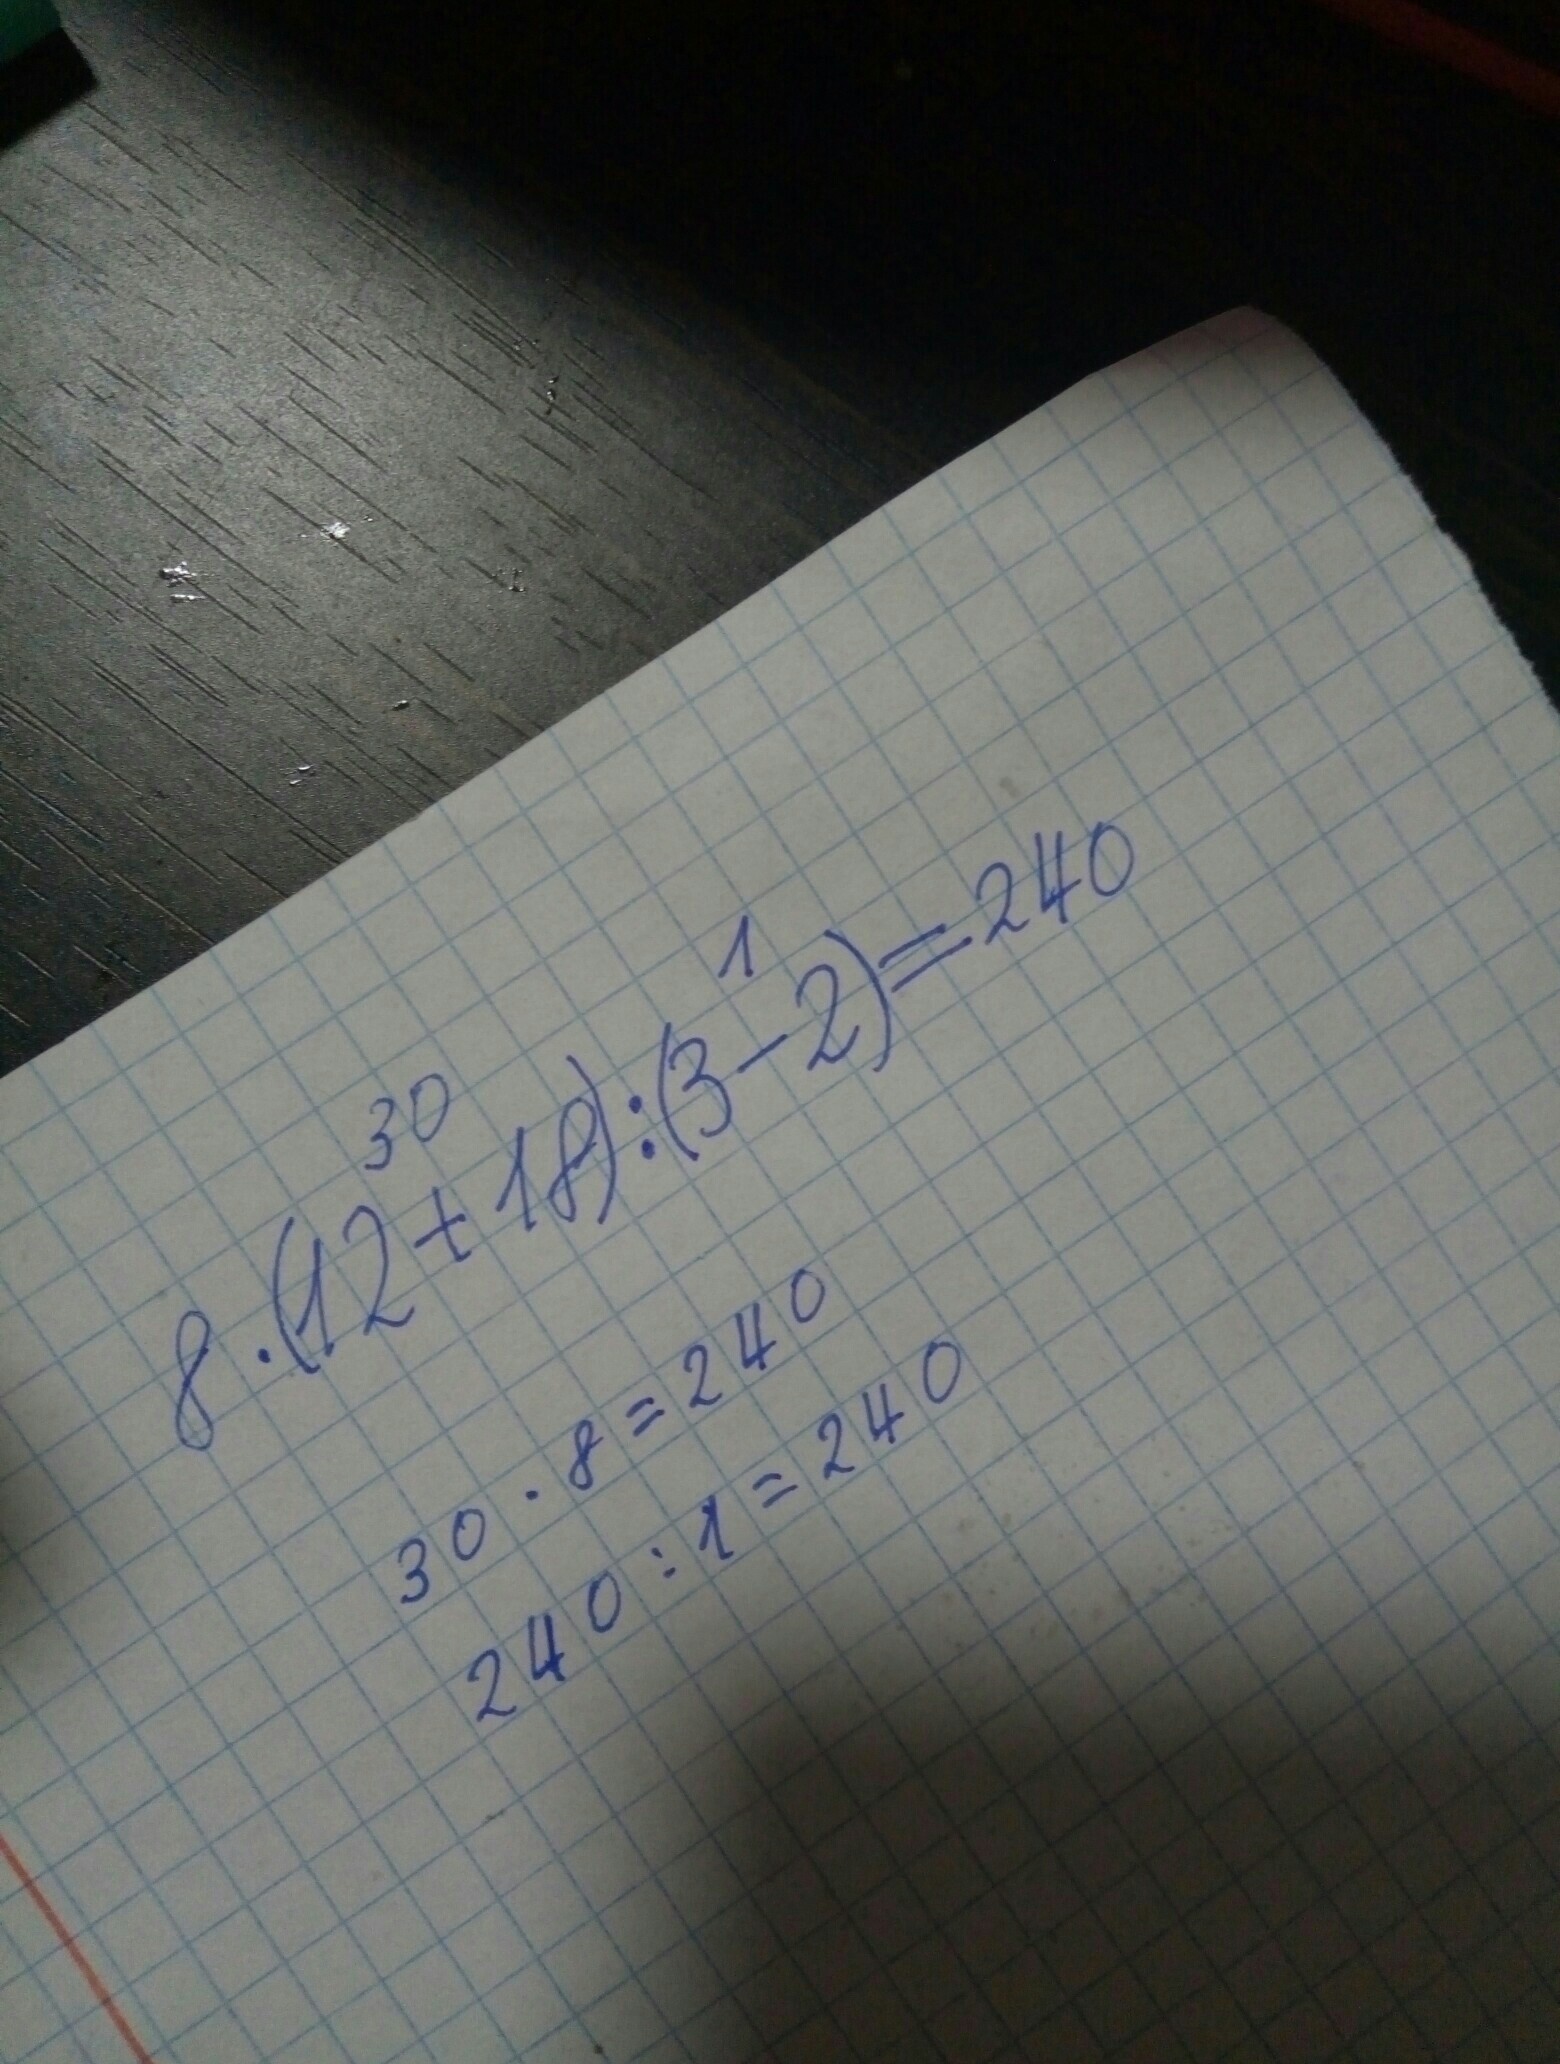 30 1
8·(12+18):(3-2)=240
30·8=240
240:1=240